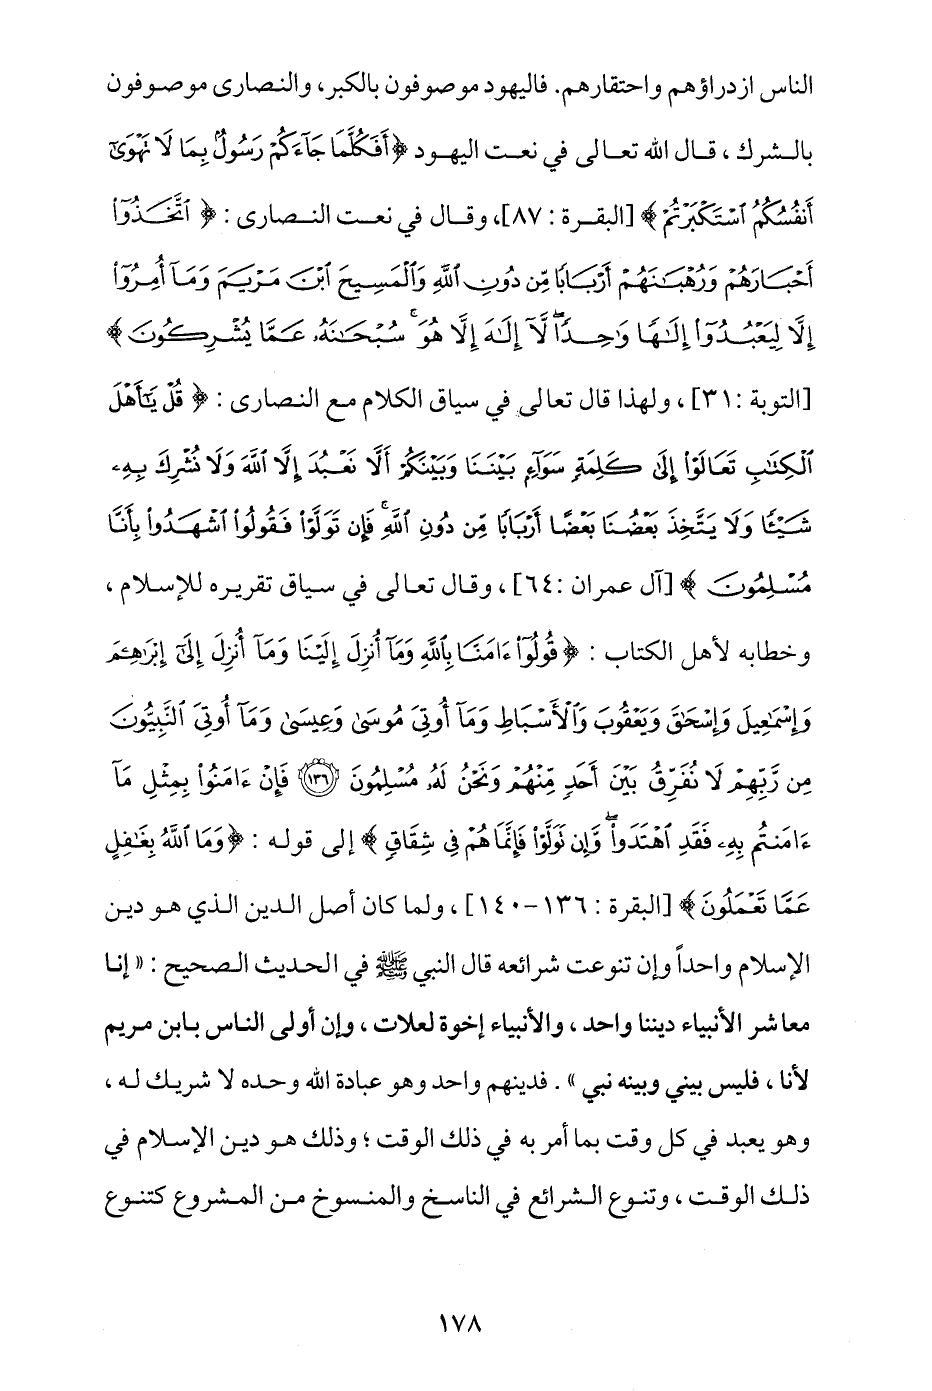 الناس ازدراؤهم واحتقارهم. فاليهود موصوفون بالكبر، والنصارى موصوفون
بالشرك ، قال الله تعالى في نعت اليهود ﴿أَفَكُلَّمَا جَآءَكُمْ رَسُولٌۢ بِمَا لَا تَهْوَىٰٓ
أَنفُسُكُمُ ٱسْتَكْبَرْتُمْ ﴾ [البقرة : ٨٧]، وقال في نعت النصارى : ﴿ ٱتَّخَذُوٓا۟
أَحْبَارَهُمْ وَرُهْبَـٰنَهُمْ أَرْبَابًا مِّن دُونِ ٱللَّهِ وَٱلْمَسِيحَ ٱبْنَ مَرْيَمَ وَمَآ أُمِرُوٓا۟
إِلَّا لِيَعْبُدُوٓا۟ إِلَـٰهًا وَٰحِدًا ۖ لَّآ إِلَـٰهَ إِلَّا هُوَ ۚ سُبْحَـٰنَهُۥ عَمَّا يُشْرِكُونَ ﴾
[التوبة : ٣١] ، ولهذا قال تعالى في سياق الكلام مع النصارى : ﴿ قُلْ يَـٰٓأَهْلَ
ٱلْكِتَـٰبِ تَعَالَوْا۟ إِلَىٰ كَلِمَةٍ سَوَآءٍۭ بَيْنَنَا وَبَيْنَكُمْ أَلَّا نَعْبُدَ إِلَّا ٱللَّهَ وَلَا نُشْرِكَ بِهِۦ
شَيْـًٔا وَلَا يَتَّخِذَ بَعْضُنَا بَعْضًا أَرْبَابًا مِّن دُونِ ٱللَّهِ ۚ فَإِن تَوَلَّوْا۟ فَقُولُوا۟ ٱشْهَدُوا۟ بِأَنَّا
مُسْلِمُونَ ﴾ [آل عمران : ٦٤] ، وقال تعالى في سياق تقريره للإسلام ،
وخطابه لأهل الكتاب : ﴿ قُولُوٓا۟ ءَامَنَّا بِٱللَّهِ وَمَآ أُنزِلَ إِلَيْنَا وَمَآ أُنزِلَ إِلَىٰٓ إِبْرَٰهِـۧمَ
وَإِسْمَـٰعِيلَ وَإِسْحَـٰقَ وَيَعْقُوبَ وَٱلْأَسْبَاطِ وَمَآ أُوتِىَ مُوسَىٰ وَعِيسَىٰ وَمَآ أُوتِىَ ٱلنَّبِيُّونَ
مِن رَّبِّهِمْ لَا نُفَرِّقُ بَيْنَ أَحَدٍ مِّنْهُمْ وَنَحْنُ لَهُۥ مُسْلِمُونَ ١٣٦ فَإِنْ ءَامَنُوا۟ بِمِثْلِ مَآ
ءَامَنتُم بِهِۦ فَقَدِ ٱهْتَدَوا۟ ۖ وَّإِن تَوَلَّوْا۟ فَإِنَّمَا هُمْ فِى شِقَاقٍ ﴾ إلى قوله : ﴿وَمَا ٱللَّهُ بِغَـٰفِلٍ
عَمَّا تَعْمَلُونَ﴾ [البقرة : ١٣٦-١٤٠] ، ولما كان أصل الدين الذي هو دين
الإسلام واحداً وإن تنوعت شرائعه قال النبي ﷺ في الحديث الصحيح : « إنا
معاشر الأنبياء ديننا واحد ، والأنبياء إخوة لعلات ، وإن أولى الناس بابن مريم
لأنا ، فليس بيني وبينه نبي » . فدينهم واحد وهو عبادة الله وحده لا شريك له ،
وهو يعبد في كل وقت بما أمر به في ذلك الوقت ؛ وذلك هو دين الإسلام في
ذلك الوقت ، وتنوع الشرائع في الناسخ والمنسوخ من المشروع كتنوع
١٧٨